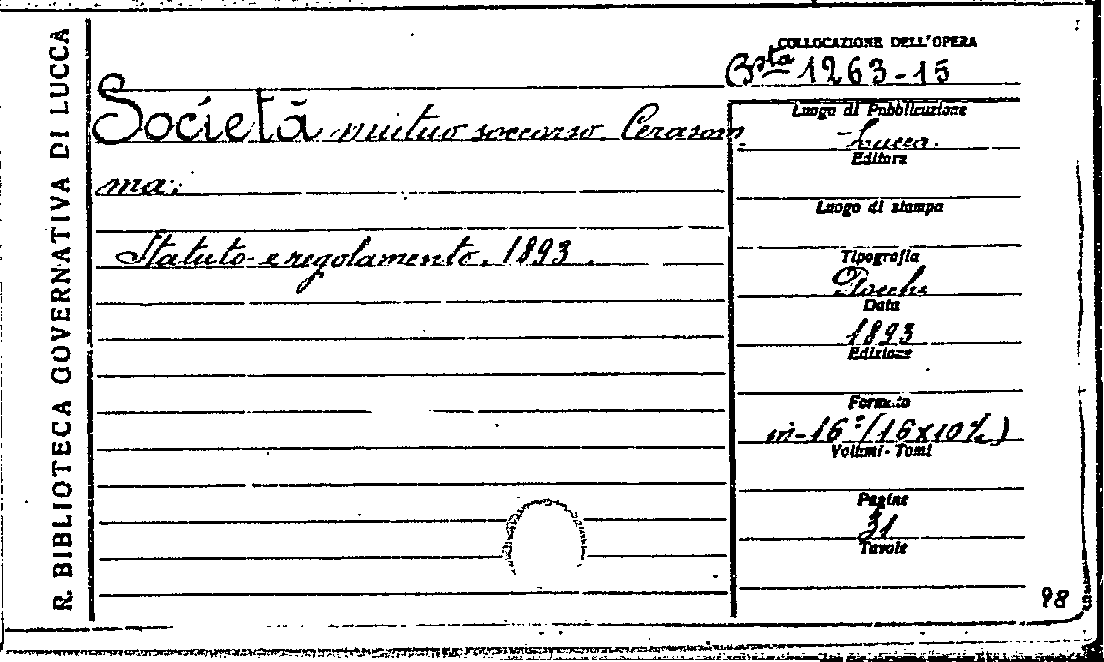 R. BIBLIOTECA GOVERNATIVA DI LUCCA
COLLOCAZIONE DELL'OPERA
Bsta 1263-15
Società mutuo soccorso Cerasom
ma;
Statuto e regolamento. 1893.
Luogo di Pubblicazione
Lucca.
Editore
Luogo di stampa
Tipografia
Data
1893
Edizione
Formato
in-16° (16x10½)
Volumi - Tomi
Pagine
31
Tavole
98